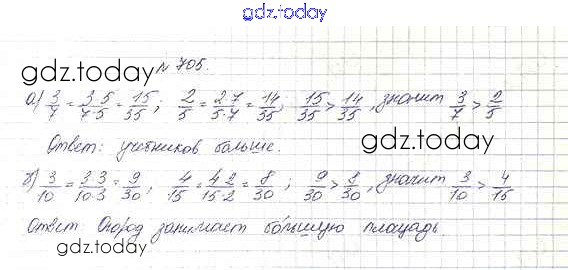 gdz.today
gdz.today
№ 705.
а) 3/7 = 3·5/7·5 = 15/35; 2/5 = 2·7/5·7 = 14/35; 15/35 > 14/35, значит 3/7 > 2/5
gdz.today
Ответ: учебников больше.
б) 3/10 = 3·3/10·3 = 9/30, 4/15 = 4·2/15·2 = 8/30; 9/30 > 8/30, значит 3/10 > 4/15
Ответ Огород занимает бо́льшую площадь.
gdz.today